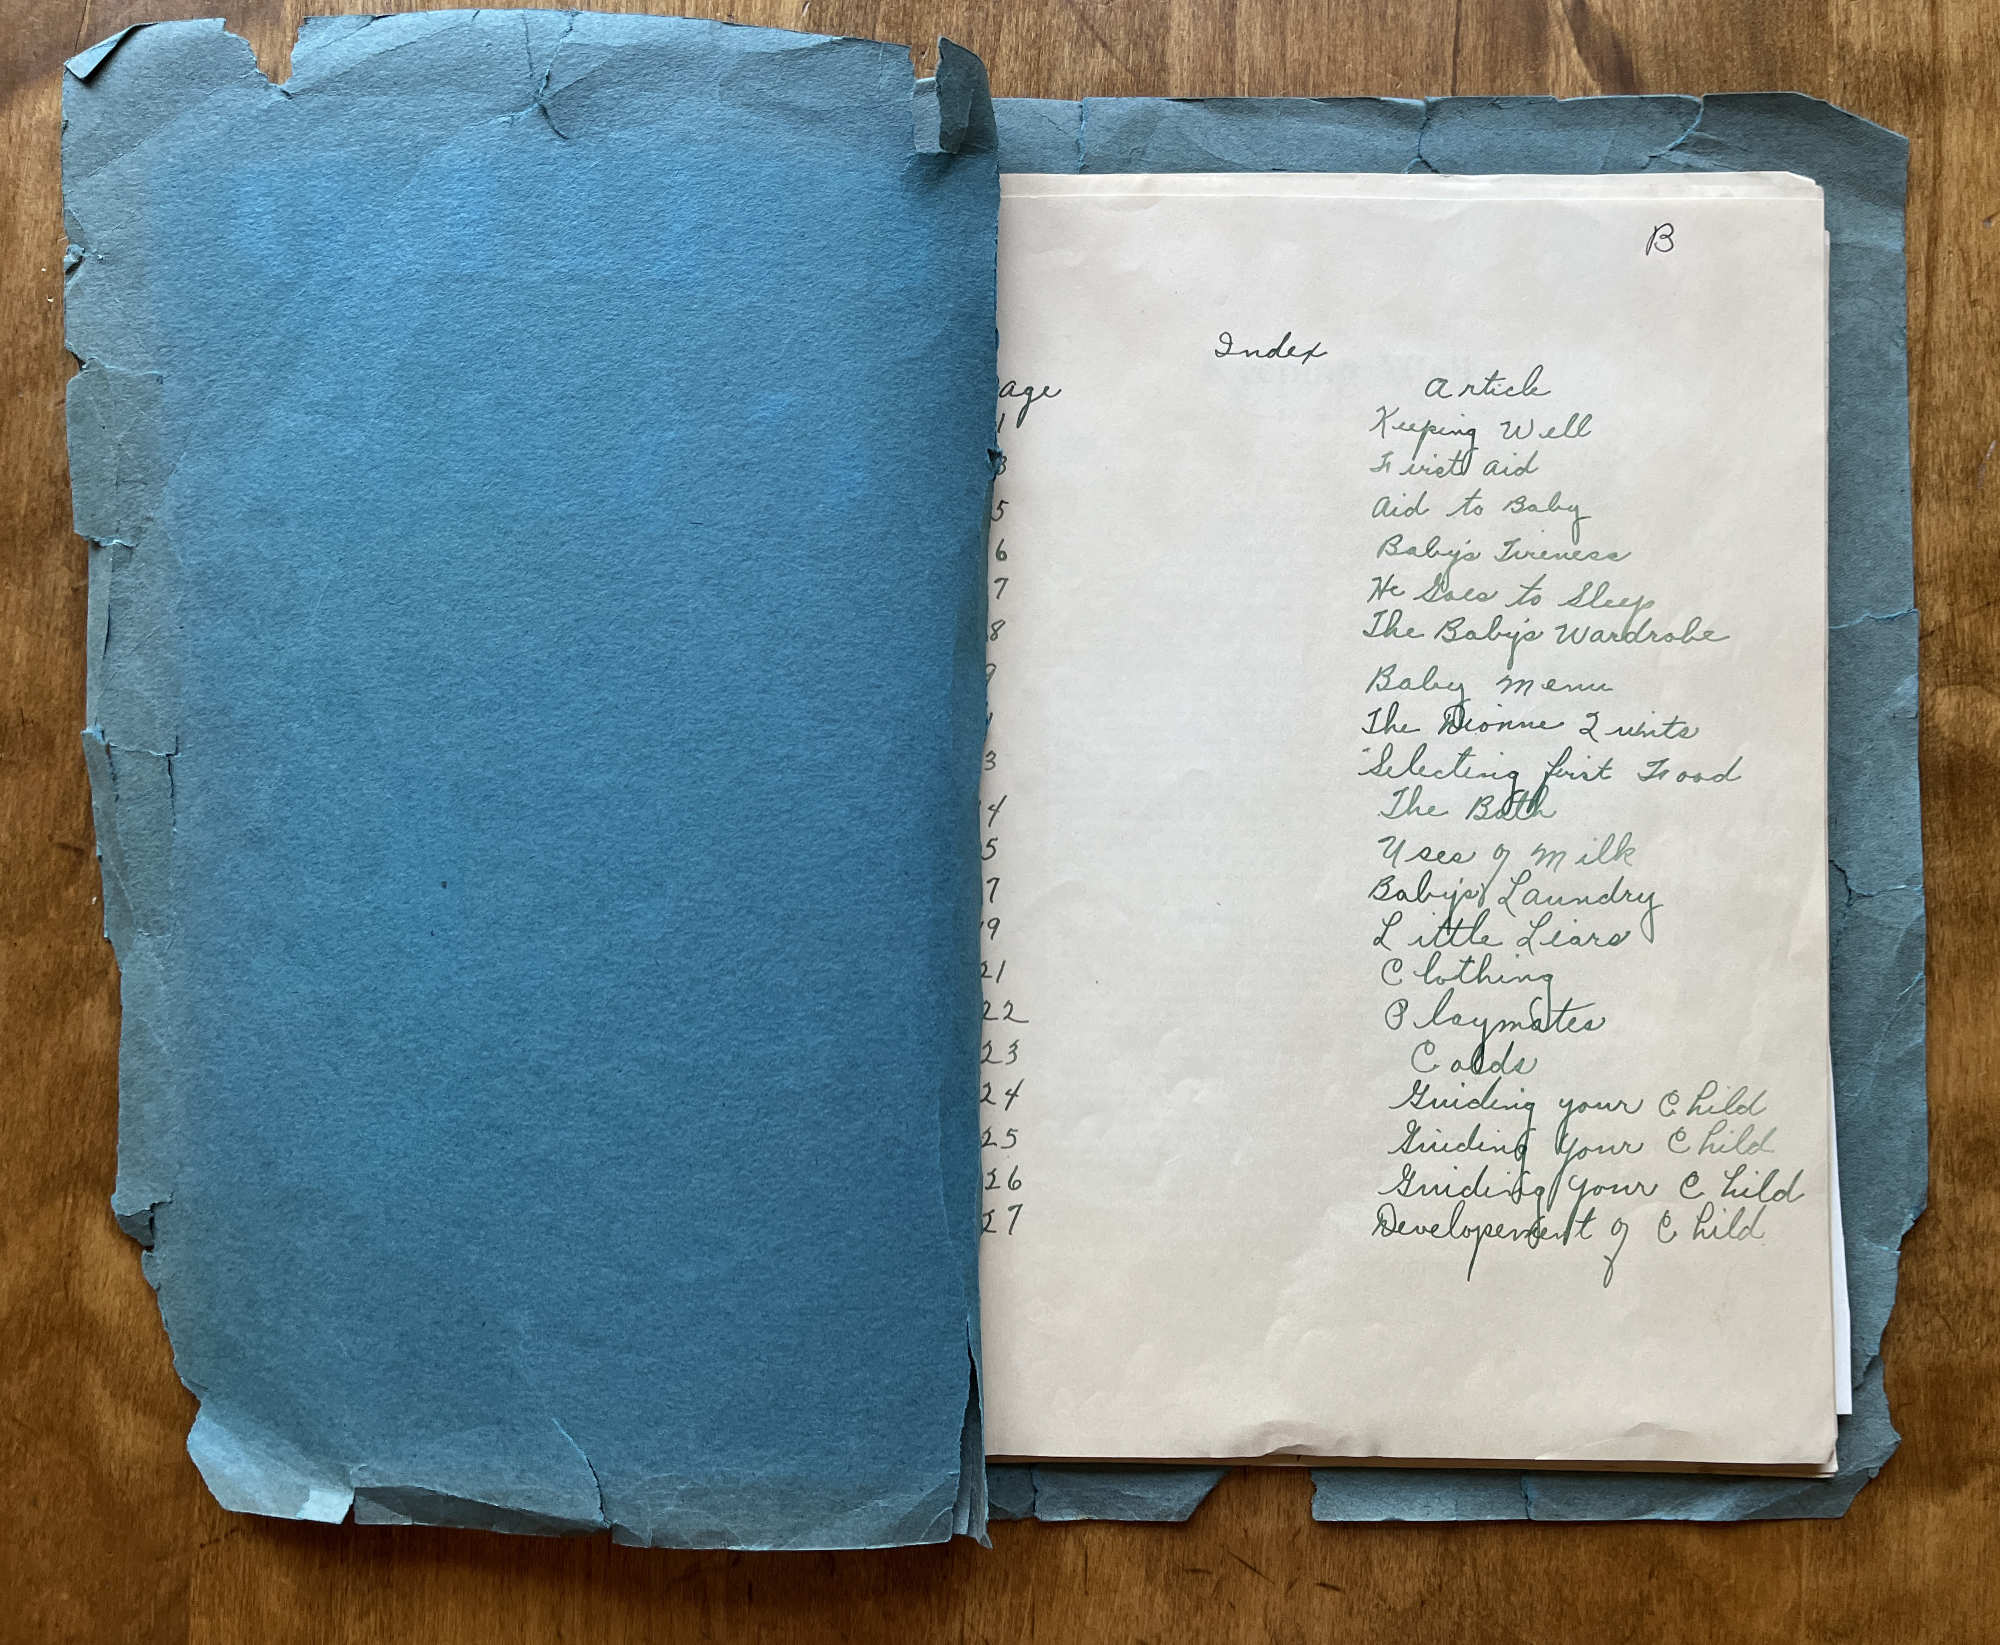 B
Index
age Article
1 Keeping Well
3 First aid
5 Aid to Baby
6 Baby's Tireness
7 He Goes to Sleep
8 The Baby's Wardrobe
9 Baby Menu
The Dionne Quints
3 Selecting first Food
4 The Bath
5 Uses of Milk
7 Baby's Laundry
9 Little Liars
21 Clothing
22 Playmates
23 Colds
24 Guiding your Child
25 Guiding your Child
26 Guiding your Child
27 Developement of Child